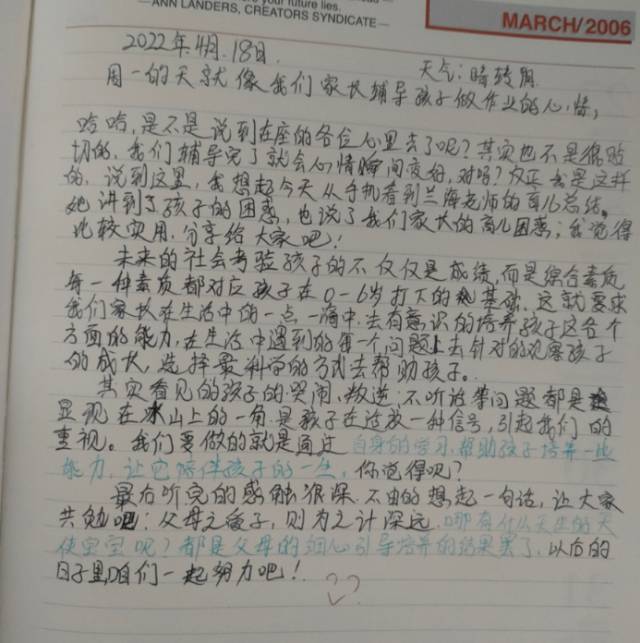 your future lies.
— ANN LANDERS, CREATORS SYNDICATE —
MARCH/2006
2022年4月.18日.
天气:晴转阴
周一的天就像我们家长辅导孩子做作业的心情,
哈哈,是不是说到在座的各位心里去了呢?其实也不是很贴
切的,我们辅导完了就会心情瞬间变好,对吗?反正我是这样
的,说到这里,我想起今天从手机看到兰海老师的育儿总结。
她讲到了孩子的困惑,也说了我们家长的育儿困惑;我觉得
比较实用.分享给大家吧!
未来的社会考验孩子的不仅仅是成绩,而是综合素质
每一种素质都对应孩子在0-6岁打下的基础.这就要求
我们家长在生活中的一点一滴中.去有意识的培养孩子这各个
方面的能力,在生活中遇到的每一个问题上去针对的观察孩子
的成长,选择最科学的方式去帮助孩子。
其实看见的孩子的哭闹、叛逆、不听话等问题都是
显现在冰山上的一角.是孩子在释放一种信号,引起我们的
重视。我们要做的就是通过自身的学习,帮助孩子培养一些
能力,让它陪伴孩子的一生,你觉得呢?
最后听完的感触很深.不由的想起一句话,让大家
共勉吧:父母之爱子,则为之计深远.哪有什么天生的天
使宝宝呢?都是父母的细心引导培养的结果罢了.以后的
日子里咱们一起努力吧!